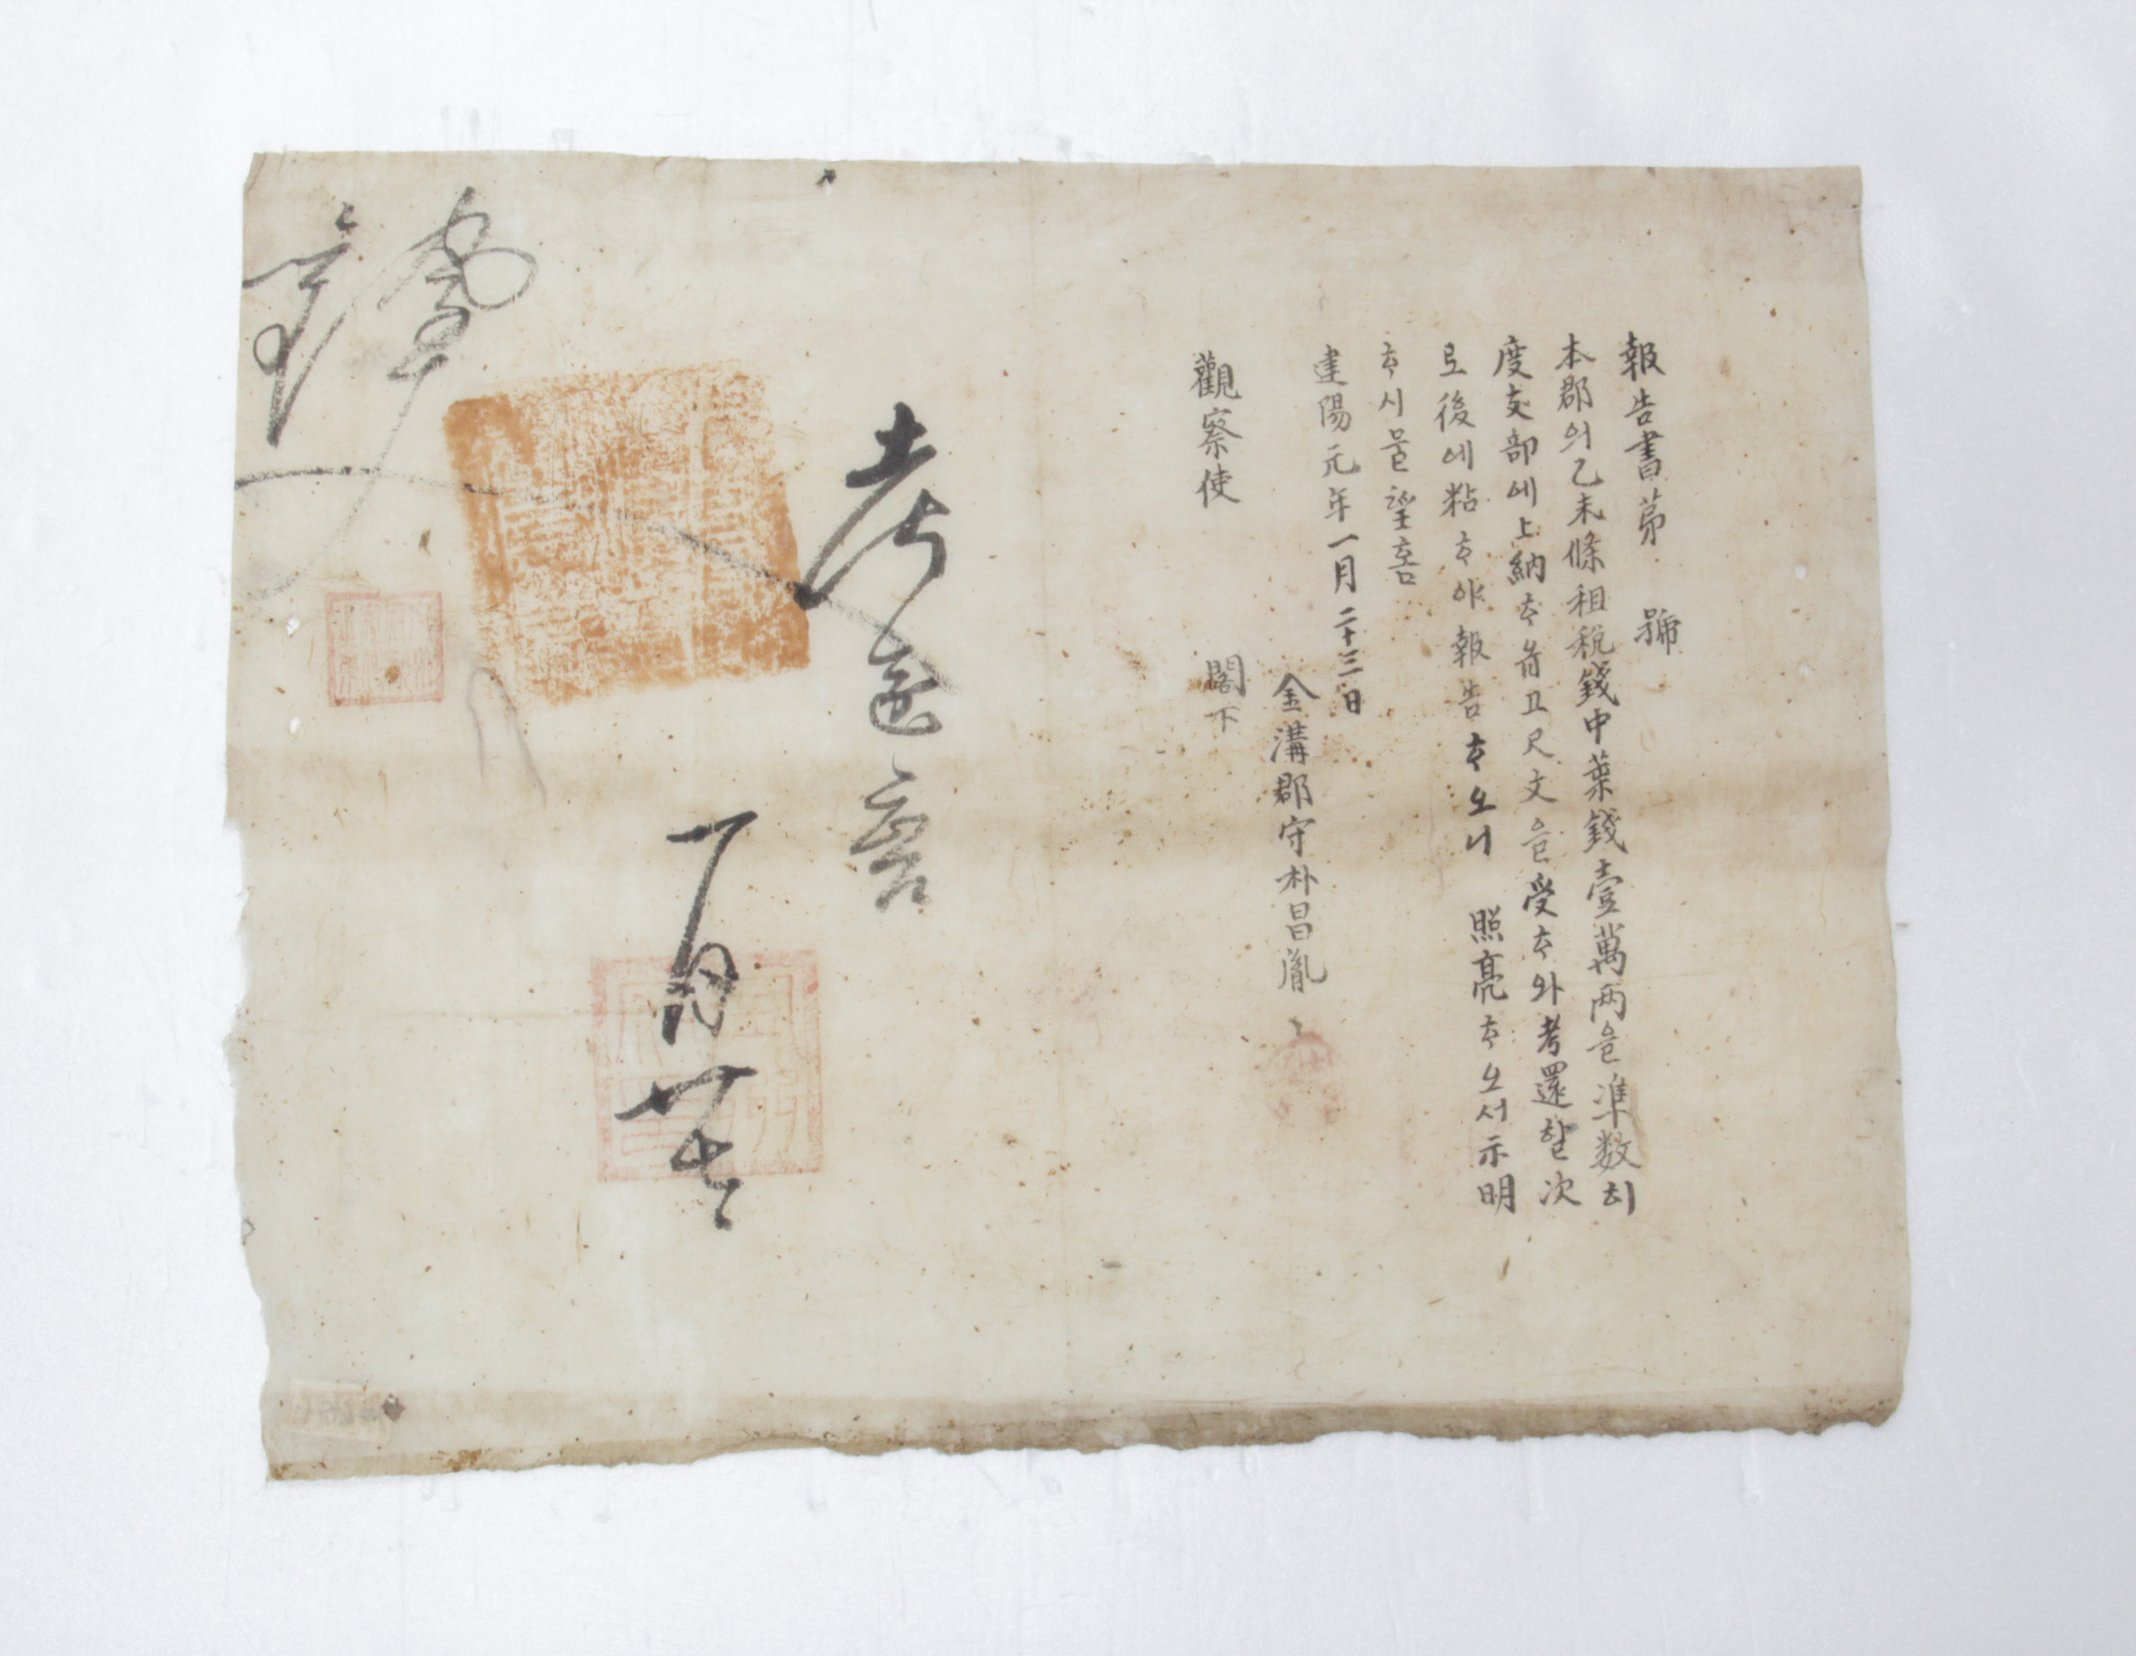 報告書苐 號
本郡의乙未條租稅錢中葉錢壹萬兩을準数히
度支部에上納ᄒᆞ읍고尺文을受ᄒᆞ와考還ᄒᆞᆯ次
로後에粘ᄒᆞ야報告ᄒᆞ오니 照亮ᄒᆞ오서示明
ᄒᆞ시믈望홈
建陽元年一月二十三日
金溝郡守朴昌胤
觀察使 閣下
考還音
一月廿七